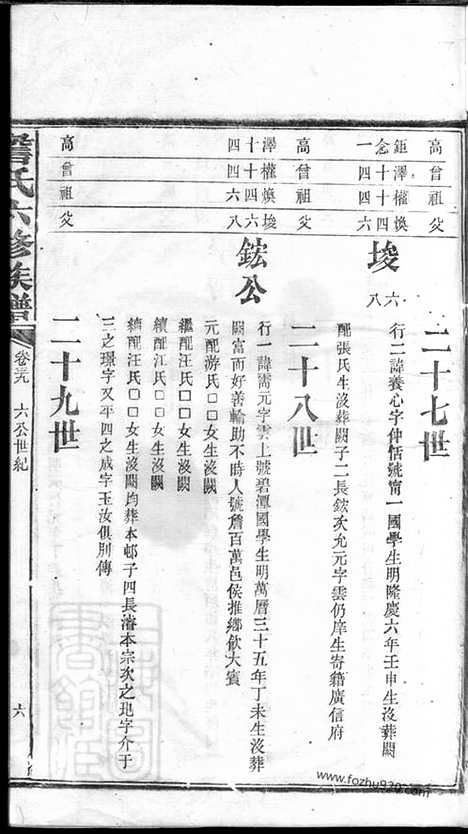 二十七世
高 鉅念一
曾 澤十四
祖 權十四
父 煥四六
埈 六八
行二諱養心字仲恬號甯一國學生明隆慶六年壬申生沒葬闕
配張氏生沒葬闕子二長鋐次允元字雲仍庠生寄籍廣信府
二十八世
高 澤十四
曾 權十四
祖 煥四六
父 埈六八
鋐公
行一諱需元字雲上號碧潭國學生明萬厤三十五年丁未生沒葬
闕富而好善輸助不時人號詹百萬邑侯推鄉飲大賓
元配游氏□□女生沒闕
繼配汪氏□□女生沒闕
續配汪氏□□女生沒闕
續配汪氏□□女生沒闕均葬本邨子四長濬本宗次之玭字介于
三之璟字又平四之成字玉汝俱別傳
二十九世
詹氏六修族譜
卷卅九 六公世紀
六
www.fozhu920.com